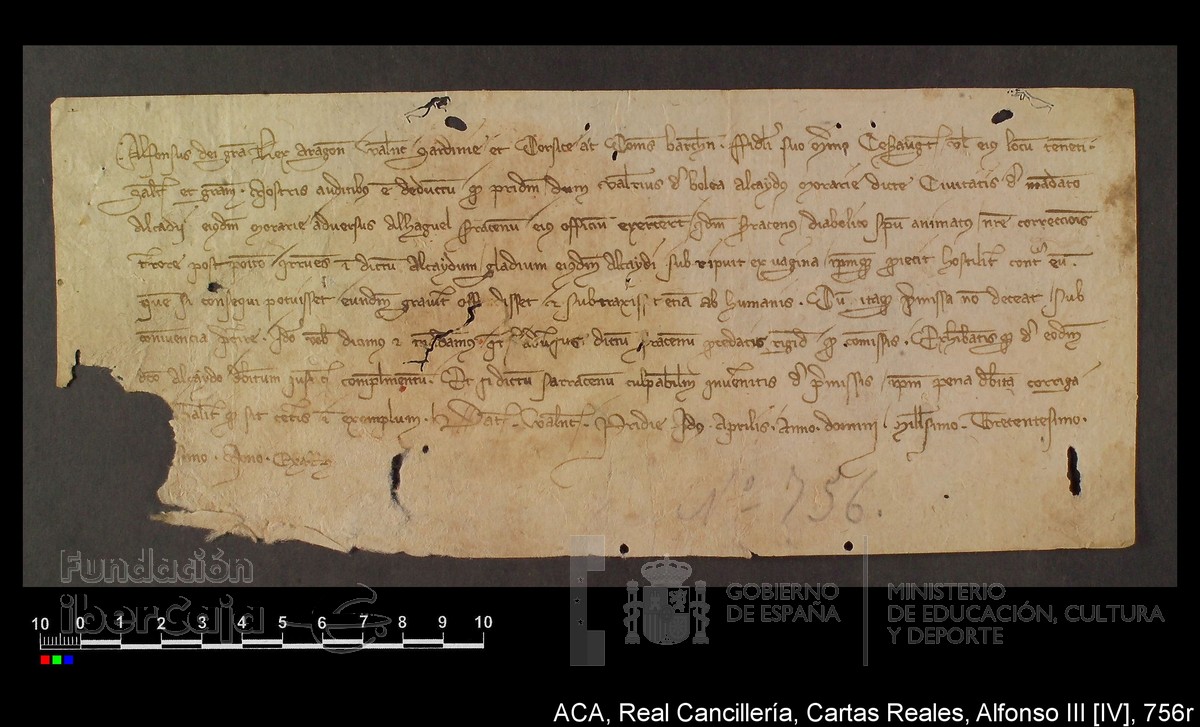 Alfonsus dei gra Rex Aragon Valent Sardinie et Corsice ac Comes barchn. ffideli suo Cesaraugt vel eius locu tenenti.
Salt et gram. Nostris auditibus e deductu qd pridem dum Valerius de bolea alcaydus morarie dicte Civitatis de mandato
Alcadii eiusdem morarie adversus Alhaguel sracenu eius officiu exerceret idem sracenus diabolico spu animatus nre correccionis
timore post posito irruens i dictu Alcaydum gladium eiusdem Alcaydi subripuit ex vagina ipmqz proiecit hostiliter contra eu.
quem si consequi potuisset eundem graviter offendisset et subtraxisset ecia ab humanis. Cu itaqz premissa no deceat sub
coniuencia preterire. Ideo vobis dicimus et mandamus qt adversus dictu sracenu procedatis rigide pro comissis. Exhibeatis qz de eodem
dco Alcaydo debitum iusticie complementu. Et si dictum sarracenu culpabilem inveneritis de premissis ipm pena debita corriga
taliter qd sit ceteris i exemplum. Dat Valent. Pridie Idus Aprilis. Anno domini Millesimo. Trecentesimo.
simo. Nono.
Nº 756.
Fundación
ibercaja
GOBIERNO
DE ESPAÑA
MINISTERIO
DE EDUCACIÓN, CULTURA
Y DEPORTE
10 0 1 2 3 4 5 6 7 8 9 10
ACA, Real Cancillería, Cartas Reales, Alfonso III [IV], 756r